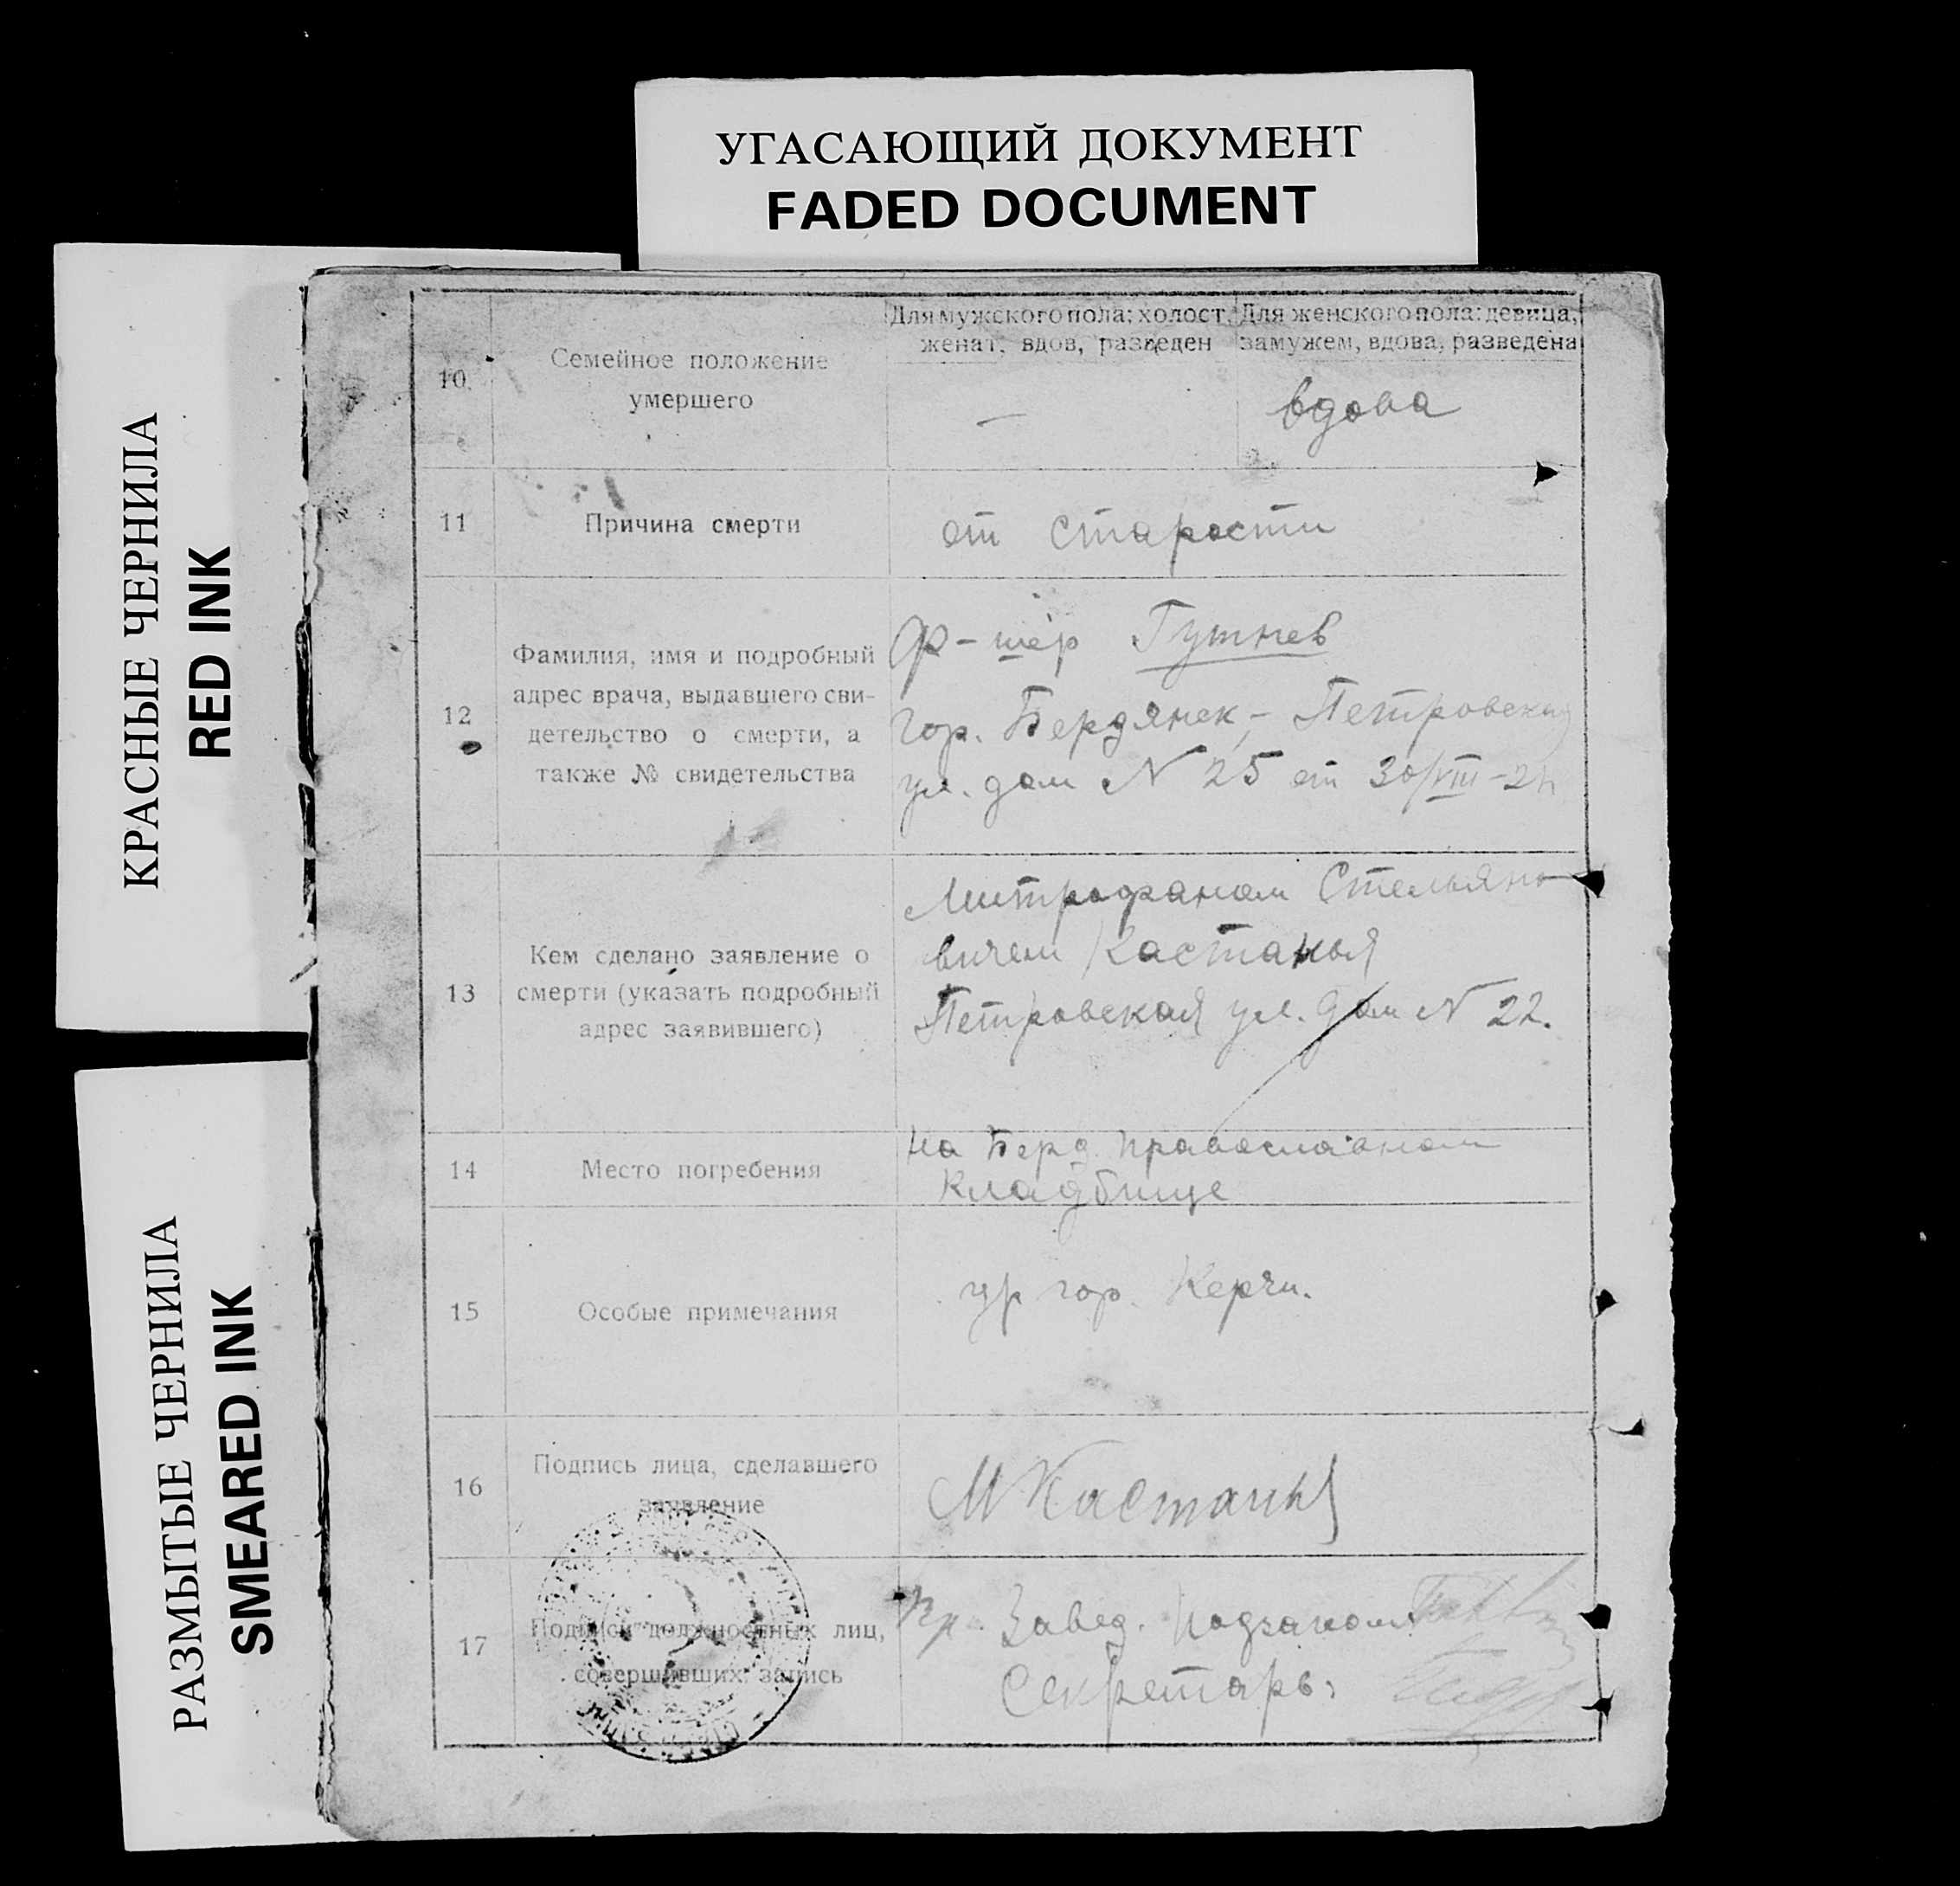 УГАСАЮЩИЙ ДОКУМЕНТ
FADED DOCUMENT
КРАСНЫЕ ЧЕРНИЛА
RED INK
РАЗМЫТЫЕ ЧЕРНИЛА
SMEARED INK
10.
Семейное положение
умершего
Для мужского пола: холост,
женат, вдов, разведен
Для женского пола: девица,
замужем, вдова, разведена
—
вдова
11
Причина смерти
от старости
12
Фамилия, имя и подробный
адрес врача, выдавшего сви-
детельство о смерти, а
также № свидетельства
Ф-шер Гутнев
гор. Бердянск, - Петровская
ул. дом N 25 от 30/VIII-
13
Кем сделано заявление о
смерти (указать подробный
адрес заявившего)
Митрофаном Стельяно
вичем Кастанья
Петровская ул. дом N 22.
14
Место погребения
на Берд. православном
кладбище
15
Особые примечания
ур гор. Керчи.
16
Подпись лица, сделавшего
заявление
М Кастанья
17
Подписи должностных лиц,
совершивших запись
Завед.
Секретарь